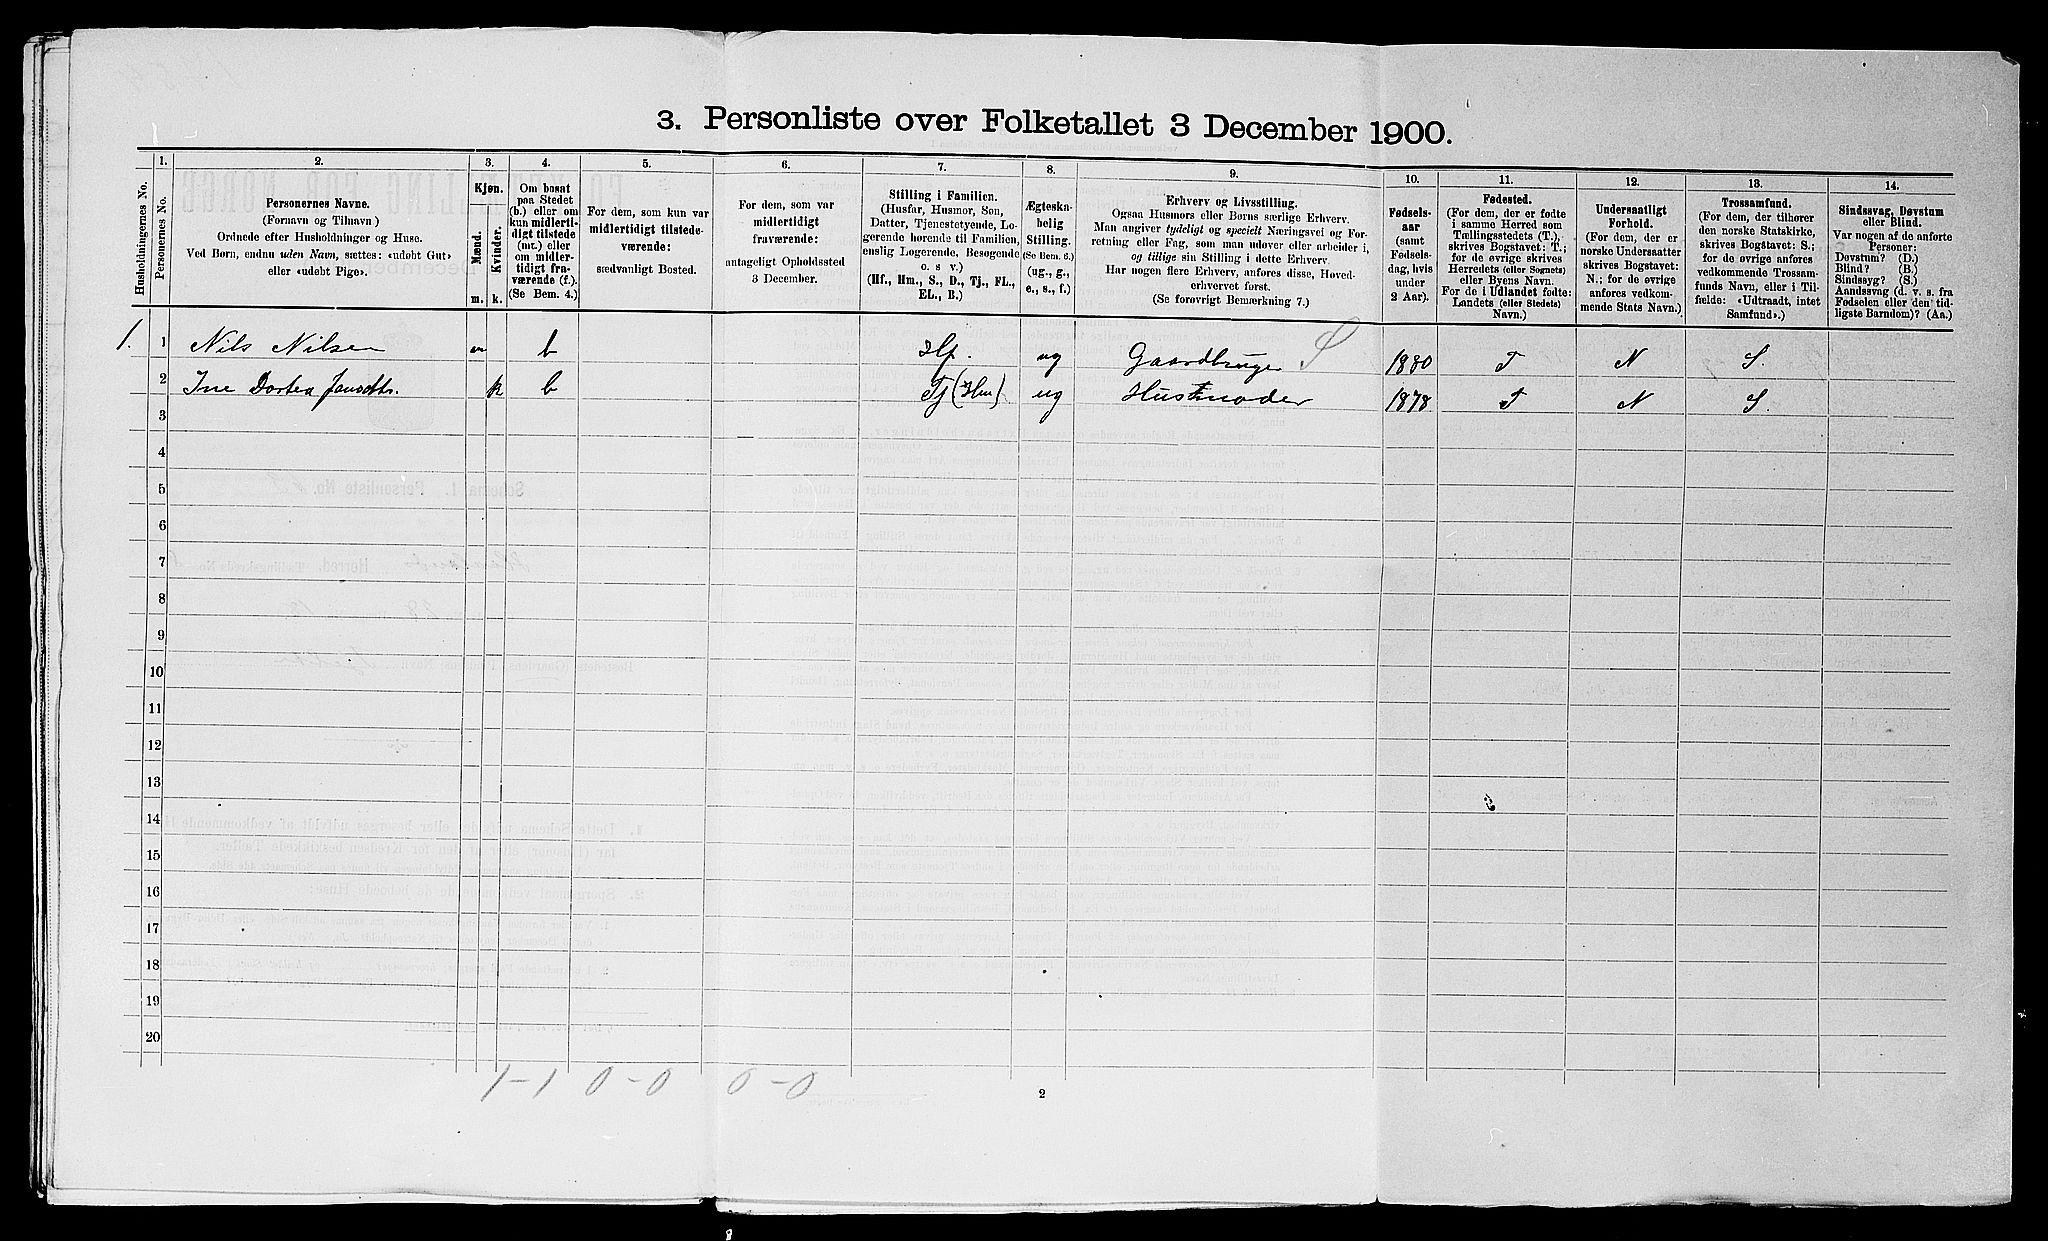 3. Personliste over Folketallet 3 December 1900.
Husholdningernes No.
1.
Personernes No.
2.
Personernes Navne.
(Fornavn og Tilnavn)
Ordnede efter Husholdninger og Huse.
Ved Børn, endnu uden Navn, sættes: «udøbt Gut»
eller «udøbt Pige».
3.
Kjøn.
Mænd.
Kvinder.
m.
k.
4.
Om bosat
paa Stedet
(b.) eller om
kun midlerti-
digt tilstede
(mt.) eller
om midler-
tidigt fra-
værende (f.).
(Se Bem. 4.)
5.
For dem, som kun var
midlertidigt tilstede-
værende:
sædvanligt Bosted.
6.
For dem, som var
midlertidigt
fraværende:
antageligt Opholdssted
3 December.
7.
Stilling i Familien.
(Husfar, Husmor, Søn,
Datter, Tjenestetyende, Lo-
gerende hørende til Familien,
enslig Logerende, Besøgende
o. s v.)
(Hf., Hm., S., D., Tj., FL.,
EL., B.)
8.
Ægteska-
belig
Stilling.
(Se Bem. 6.)
(ug., g.,
e., s., f.)
9.
Erhverv og Livsstilling.
Ogsaa Husmors eller Børns særlige Erhverv.
Man angiver tydeligt og specielt Næringsvei og For-
retning eller Fag, som man udøver eller arbeider i,
og tillige sin Stilling i dette Erhverv.
Har nogen flere Erhverv, anføres disse, Hoved-
erhvervet først.
(Se forøvrigt Bemærkning 7.)
10.
Fødsels-
aar
(samt
Fødsels-
dag, hvis
under
2 Aar).
11.
Fødested.
(For dem, der er fødte
i samme Herred som
Tællingsstedets (T.),
skrives Bogstavet: T.;
for de øvrige skrives
Herredets (eller Sognets)
eller Byens Navn.
For de i Udlandet fødte:
Landets (eller Stedets)
Navn.)
12.
Undersaatligt
Forhold.
(For dem, der er
norske Undersaatter
skrives Bogstavet:
N.; for de øvrige
anføres vedkom-
mende Stats Navn.)
13.
Trossamfund.
(For dem, der tilhører
den norske Statskirke,
skrives Bogstavet: S.;
for de øvrige anføres
vedkommende Trossam-
funds Navn, eller i Til-
fælde: «Udtraadt, intet
Samfund».)
14.
Sindssvag, Døvstum
eller Blind.
Var nogen af de anførte
Personer:
Døvstum? (D.)
Blind? (B.)
Sindssyg? (S.)
Aandssvag (d. v. s. fra
Fødselen eller den tid-
ligste Barndom)? (Aa.)
1. 1 Nils Nilsen m b Hf. ug Gaardbruger S 1880 T N S.
2 Ine Dortea Jansdtr. k b Tj (Hm) ug Husmoder 1878 T N S.
3
4
5
6
7
8
9
10
11
12
13
14
15
16
17
18
19
20
1-1 0-0 0-0
2